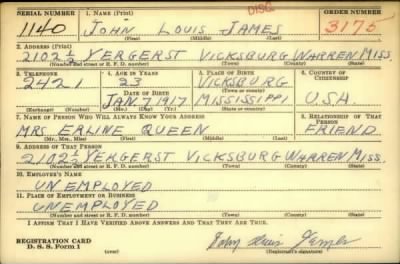 SERIAL NUMBER 1. NAME (Print) DISC. ORDER NUMBER
1140 JOHN LOUIS JAMES 3175
(First) (Middle) (Last)
2. ADDRESS (Print)
2102½ YERGERST VICKSBURG WARREN MISS.
(Number and street or R. F. D. number) (Town) (County) (State)
3. TELEPHONE 4. AGE IN YEARS 5. PLACE OF BIRTH 6. COUNTRY OF CITIZENSHIP
2421 23 VICKSBURG
DATE OF BIRTH (Town or county)
JAN 7 1917 MISSISSIPPI U.S.A.
(Exchange) (Number) (Mo.) (Day) (Yr.) (State or country)
7. NAME OF PERSON WHO WILL ALWAYS KNOW YOUR ADDRESS 8. RELATIONSHIP OF THAT PERSON
MRS ERLINE QUEEN FRIEND
(Mr., Mrs., Miss) (First) (Middle) (Last)
9. ADDRESS OF THAT PERSON
2102½ YERGERST VICKSBURG WARREN MISS.
(Number and street or R. F. D. number) (Town) (County) (State)
10. EMPLOYER'S NAME
UNEMPLOYED
11. PLACE OF EMPLOYMENT OR BUSINESS
UNEMPLOYED
(Number and street or R. F. D. number) (Town) (County) (State)
I AFFIRM THAT I HAVE VERIFIED ABOVE ANSWERS AND THAT THEY ARE TRUE.
REGISTRATION CARD
D. S. S. Form 1 John Louis James
(Registrant's signature)